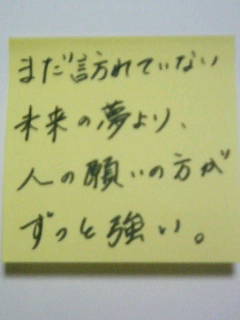 まだ訪れていない
未来の夢より、
人の願いの方が
ずっと強い。